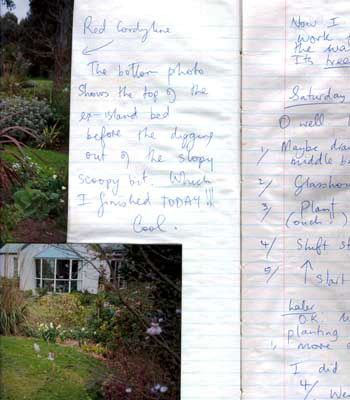 Red Cordyline
The bottom photo
shows the top of the
ex-island bed
before the digging
out of the slopy
scoopy bit. Which
I finished TODAY!!!
Cool.
Now I
work
the wa
Its tree
Saturday
O well
1/ Maybe dra
middle b
2/ Glassho
3/ Plant
(ouch!)
4/ Shift st
5/ ↑
start
Later
O.K. M
planting
1, more
I did
4/. We